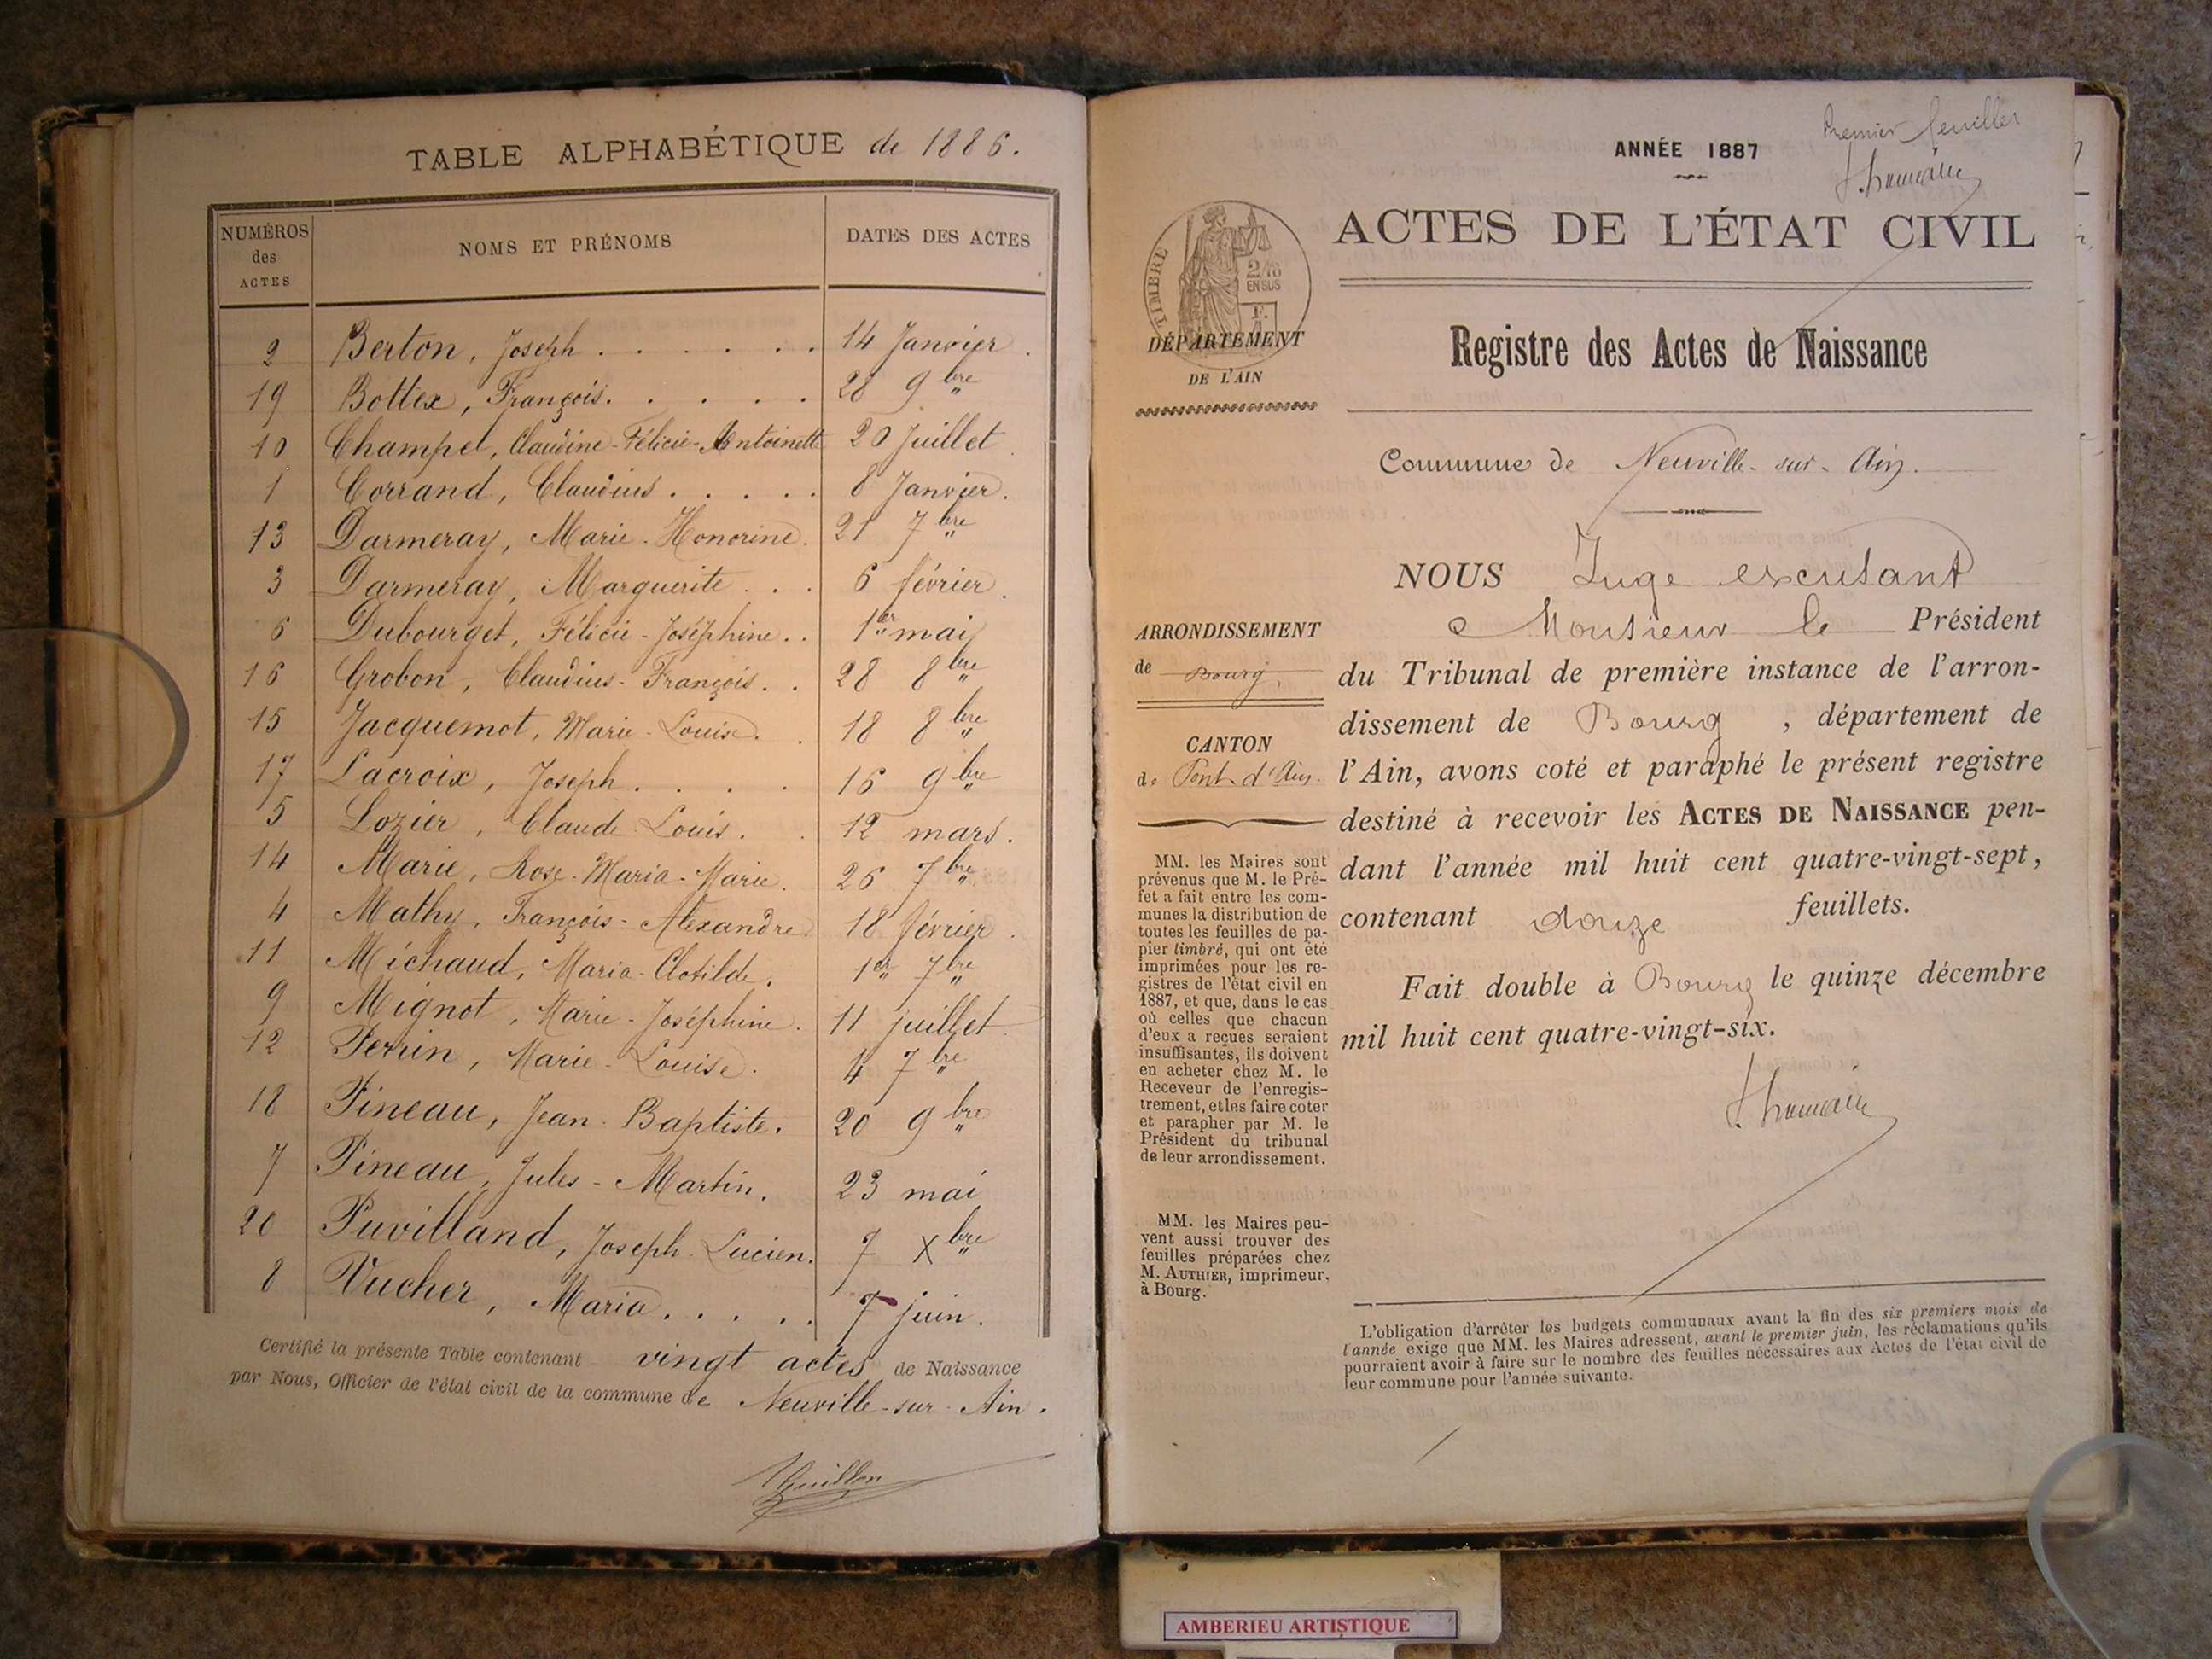 TABLE ALPHABÉTIQUE de 1886.
NUMÉROS des ACTES NOMS ET PRÉNOMS DATES DES ACTES
2 Berton, Joseph . . . . . . 14 Janvier.
19 Bottex, François. . . . . 28 9bre
10 Champel, Claudine-Félicie-Antoinette 20 Juillet
1 Corrand, Claudius . . . . . 8 Janvier.
13 Darmeray, Marie-Honorine. 21 7bre
3 Darmeray, Marguerite . . . 6 février.
6 Dubourget, Félicie-Joséphine. . 1er mai
16 Grobon, Claudius-François. . 28 8bre
15 Jacquemot, Marie-Louise. . 18 8bre
17 Lacroix, Joseph . . . . 16 9bre
5 Lozier, Claude Louis. . 12 mars.
14 Marie, Rose-Maria-Marie. 26 7bre
4 Mathy, François-Alexandre. 18 février.
11 Michaud, Maria-Clotilde. 1er 7bre
9 Mignot, Marie-Joséphine. 11 juillet
12 Perrin, Marie-Louise. 4 7bre
18 Pineau, Jean-Baptiste. 20 9bre
7 Pineau, Jules-Martin. 23 mai
20 Puvilland, Joseph-Lucien. 7 Xbre
8 Vucher, Maria . . . . . 7 juin.
Certifié la présente Table contenant vingt actes de Naissance
par Nous, Officier de l'état civil de la commune de Neuville-sur-Ain.
ANNÉE 1887
Premier feuillet
ACTES DE L'ÉTAT CIVIL
TIMBRE
2/10
EN SUS
F.
DÉPARTEMENT
DE L'AIN
Registre des Actes de Naissance
Commune de Neuville-sur-Ain.
NOUS Juge excusant
Monsieur le Président
du Tribunal de première instance de l'arron-
dissement de Bourg, département de
l'Ain, avons coté et paraphé le présent registre
destiné à recevoir les ACTES DE NAISSANCE pen-
dant l'année mil huit cent quatre-vingt-sept,
contenant douze feuillets.
Fait double à Bourg le quinze décembre
mil huit cent quatre-vingt-six.
ARRONDISSEMENT
de Bourg.
CANTON
de Pont-d'Ain.
MM. les Maires sont
prévenus que M. le Pré-
fet a fait entre les com-
munes la distribution de
toutes les feuilles de pa-
pier timbré, qui ont été
imprimées pour les re-
gistres de l'état civil en
1887, et que, dans le cas
où celles que chacun
d'eux a reçues seraient
insuffisantes, ils doivent
en acheter chez M. le
Receveur de l'enregis-
trement, et les faire coter
et parapher par M. le
Président du tribunal
de leur arrondissement.
MM. les Maires peu-
vent aussi trouver des
feuilles préparées chez
M. AUTHIER, imprimeur,
à Bourg.
L'obligation d'arrêter les budgets communaux avant la fin des six premiers mois de
l'année exige que MM. les Maires adressent, avant le premier juin, les réclamations qu'ils
pourraient avoir à faire sur le nombre des feuilles nécessaires aux Actes de l'état civil de
leur commune pour l'année suivante.
AMBERIEU ARTISTIQUE